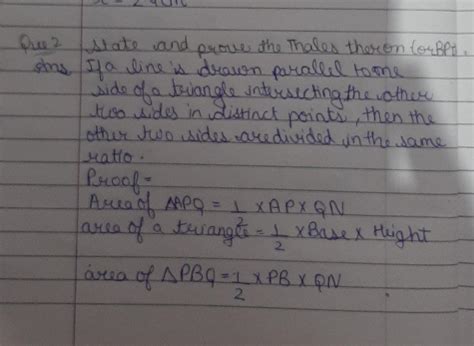 Que 2 state and prove the Thales theron (or BPT).
Ans If a line is drawn parallel to one
side of a triangle intersecting the other
two sides in distinct points, then the
other two sides are divided in the same
ratio.
Proof-
Area of ΔAPQ = 1/2 × AP × QN
area of a triangle = 1/2 × Base × Height
area of ΔPBQ = 1/2 × PB × QN